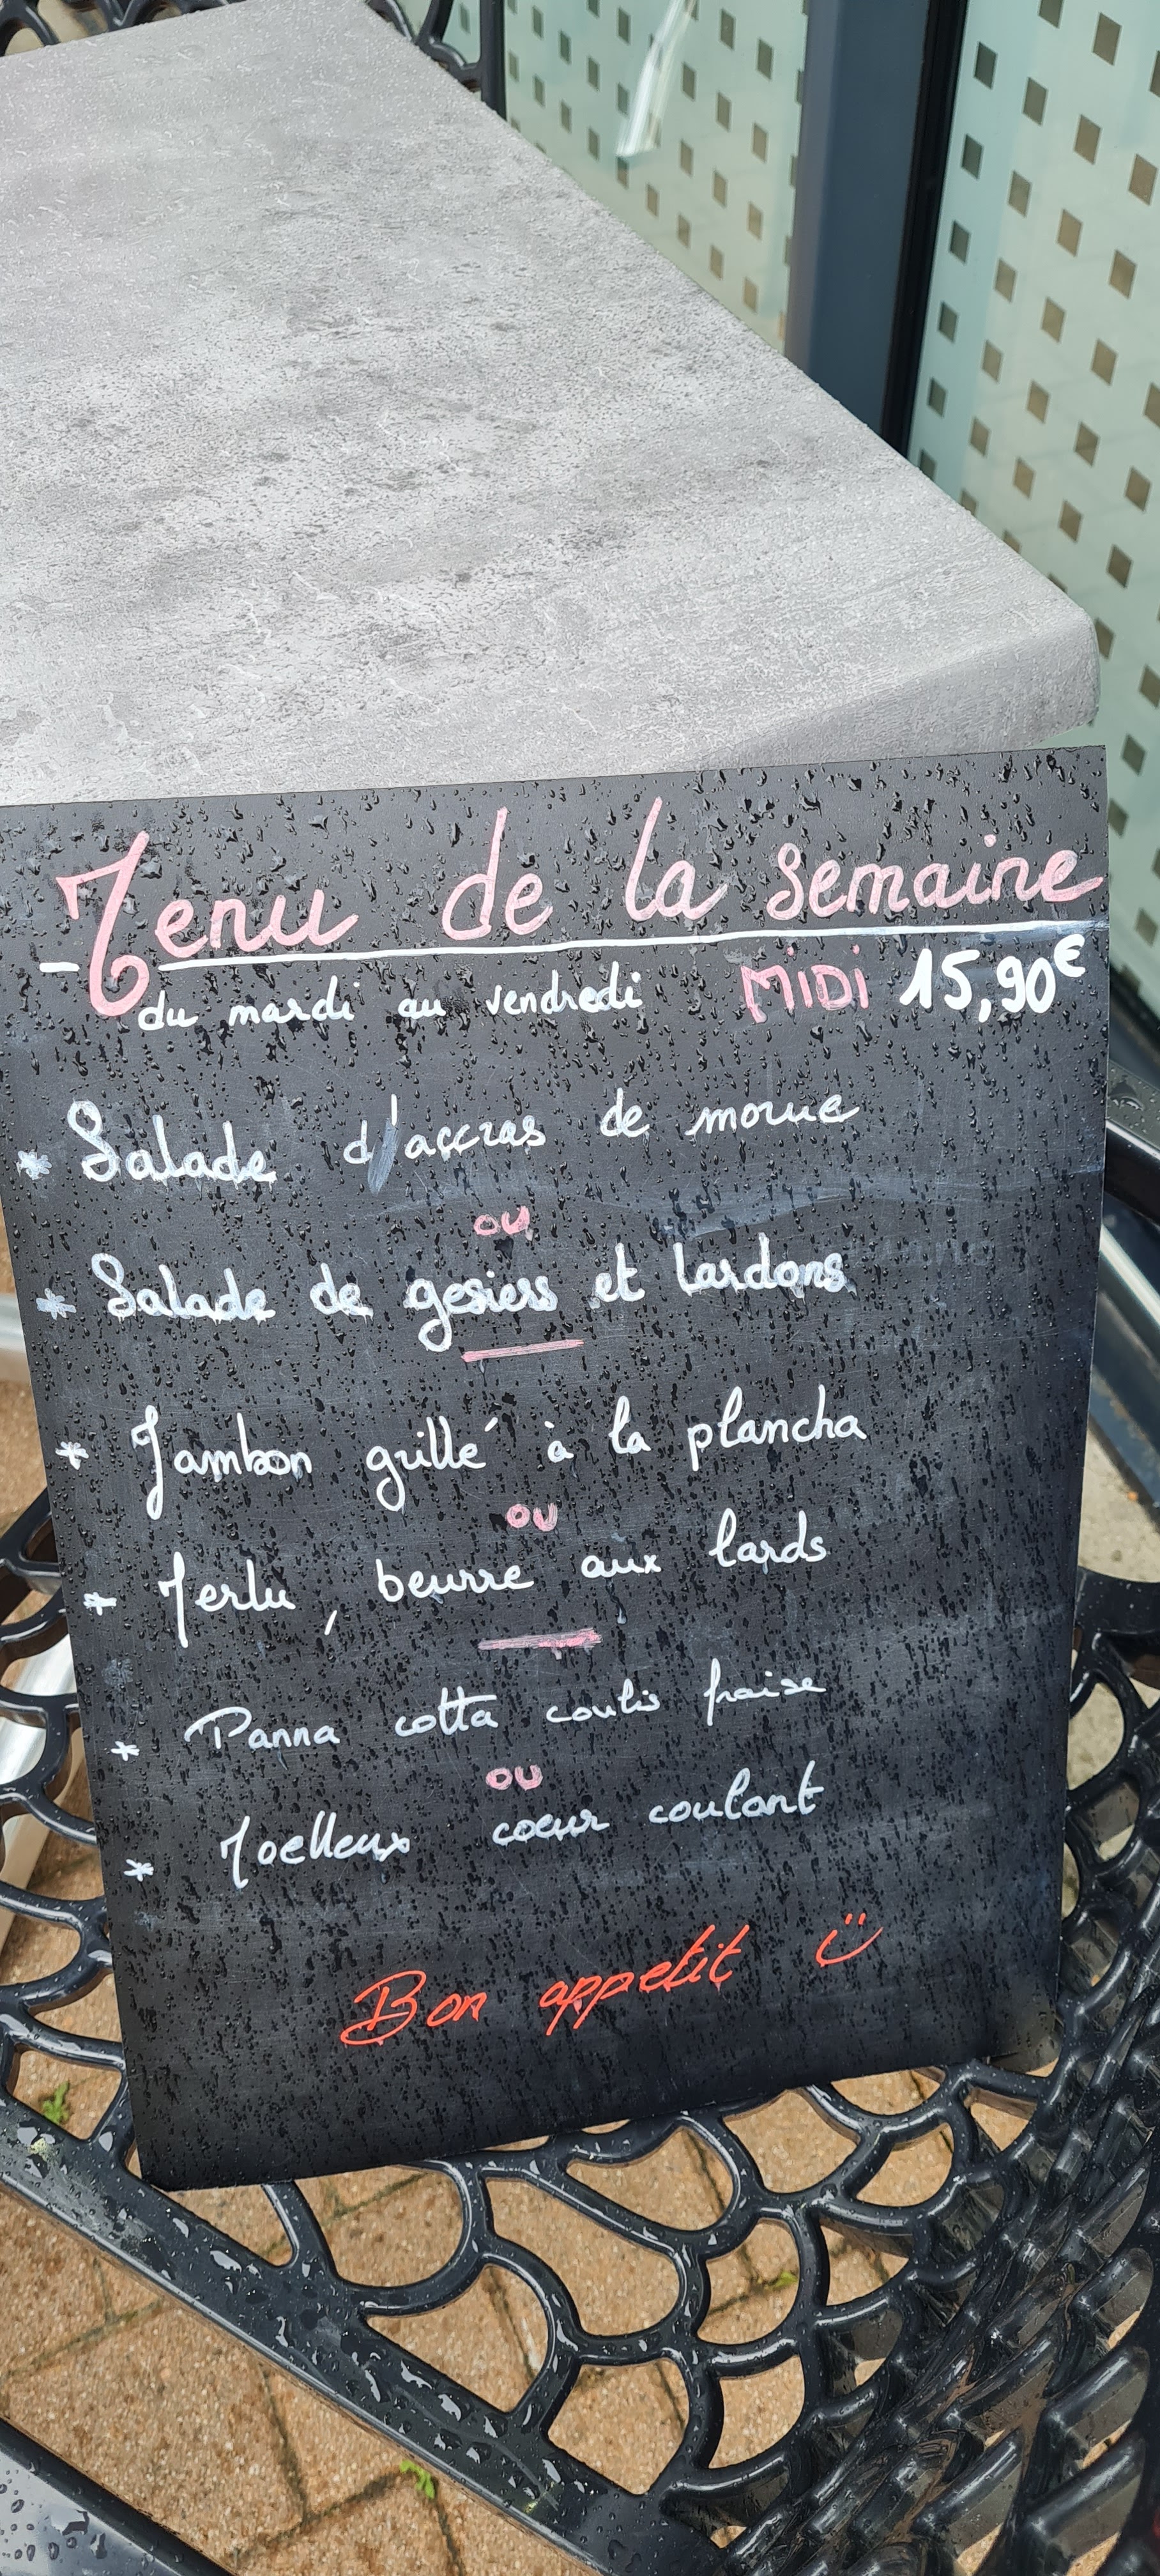 Menu de la semaine
du mardi au vendredi MiDi 15,90€
* Salade d'accras de morue
ou
* Salade de gesiers et lardons
* Jambon grillé à la plancha
ou
* Merlu, beurre aux lards
* Panna cotta coulis fraise
ou
* Moelleux coeur coulant
Bon appetit :)